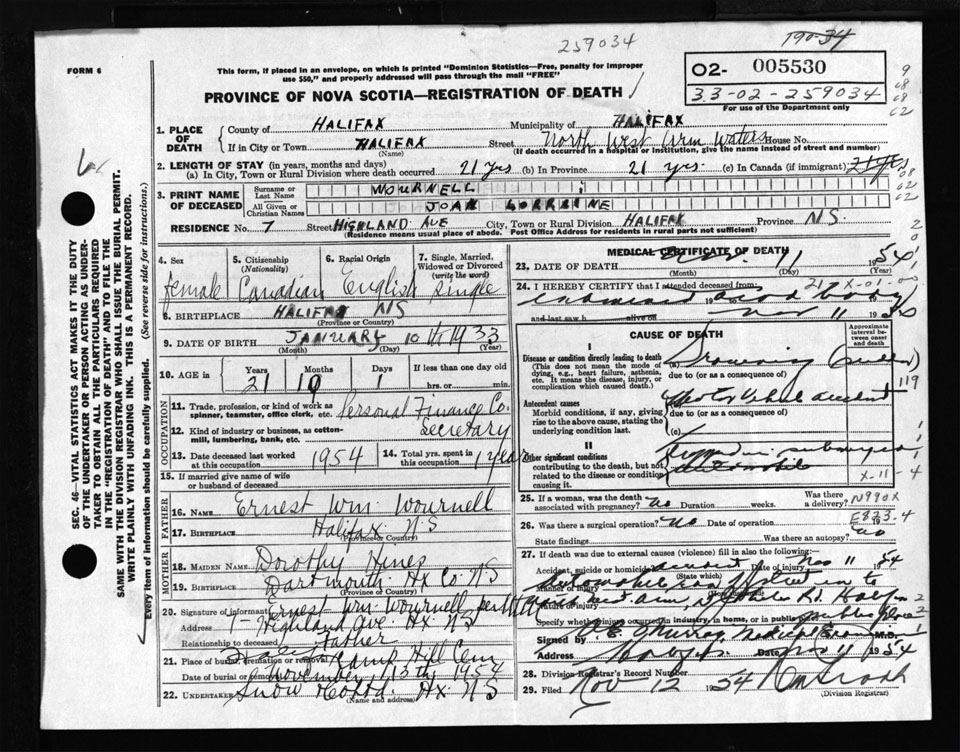 259034
190-34
FORM 6
This form, if placed in an envelope, on which is printed "Dominion Statistics—Free, penalty for improper
use $50," and properly addressed will pass through the mail "FREE"
02- 005530
3.3-02-259034
For use of the Department only
PROVINCE OF NOVA SCOTIA—REGISTRATION OF DEATH
1. PLACE OF DEATH
County of HALIFAX Municipality of HALIFAX
If in City or Town HALIFAX Street North West Arm Waters House No.
(Name) (If death occurred in a hospital or institution, give the name instead of street and number)
2. LENGTH OF STAY (in years, months and days)
(a) In City, Town or Rural Division where death occurred 21 Yrs (b) In Province 21 yrs. (c) In Canada (if immigrant) 21 yrs
3. PRINT NAME OF DECEASED
Surname or Last Name WOURNELL
All Given or Christian Names JOAN LORRAINE
RESIDENCE No. 7 Street HIGHLAND AVE City, Town or Rural Division HALIFAX Province NS
(Residence means usual place of abode. Post Office Address for residents in rural parts not sufficient)
4. Sex
female
5. Citizenship
(Nationality)
Canadian
6. Racial Origin
English
7. Single, Married,
Widowed or Divorced
(write the word)
Single
8. BIRTHPLACE HALIFAX NS
(Province or Country)
9. DATE OF BIRTH JANUARY 10th 1933
(Month) (Day) (Year)
10. AGE in
Years Months Days If less than one day old
21 10 1 hrs. or min.
OCCUPATION
11. Trade, profession, or kind of work as
spinner, teamster, office clerk, etc.
Personal Finance Co.
12. Kind of industry or business, as cotton-
mill, lumbering, bank, etc.
Secretary
13. Date deceased last worked
at this occupation 1954
14. Total yrs. spent in
this occupation 1 year
15. If married give name of wife
or husband of deceased
FATHER
16. Name Ernest Wm Wournell
17. BIRTHPLACE Halifax NS
(Province or Country)
MOTHER
18. MAIDEN NAME Dorothy Hines
19. BIRTHPLACE Dartmouth Hx Co NS
(Province or Country)
20. Signature of informant Ernest Wm. Wournell
Address 7- Highland Ave. Hx NS
Relationship to deceased Father
21. Place of burial, cremation or removal Camp Hill Cem
Date of burial or removal November 13th 1954
22. UNDERTAKER Snow Hx NS
(Name and address)
MEDICAL CERTIFICATE OF DEATH
23. DATE OF DEATH 11 1954
(Month) (Day) (Year)
24. I HEREBY CERTIFY that I attended deceased from
examined dead body
and last saw h alive on Nov 11
CAUSE OF DEATH
Approximate interval between onset and death
I
Disease or condition directly leading to death
(This does not mean the mode of
dying, e.g., heart failure, asthenia,
etc. It means the disease, injury, or
complication which caused death.)
Drowning
due to (or as a consequence of)
Antecedent causes
Morbid conditions, if any, giving
rise to the above cause, stating the
underlying condition last.
Motor Vehicle accident
due to (or as a consequence of)
(c)
119
II
Other significant conditions
contributing to the death, but not
related to the disease or condition
causing it.
automobile
X-11-4
25. If a woman, was the death
associated with pregnancy? no Duration weeks. Was there a delivery?
N990X
26. Was there a surgical operation? no Date of operation
State findings Was there an autopsy? no
E823.4
27. If death was due to external causes (violence) fill in also the following:
Accident, suicide or homicide? accident Date of injury Nov 11 1954
(State which)
Manner of injury Automobile ran
Nature of injury
Specify whether injury occurred in industry, in home, or in public place
public place
Signed by Murray Medical M.D.
Address Date Nov 11 1954
28. Division Registrar's Record Number
29. Filed Nov 12 1954
(Division Registrar)
SEC. 46—VITAL STATISTICS ACT MAKES IT THE DUTY
OF THE UNDERTAKER OR PERSON ACTING AS UNDER-
TAKER TO OBTAIN ALL THE PARTICULARS REQUIRED
IN THE "REGISTRATION OF DEATH" AND TO FILE THE
SAME WITH THE DIVISION REGISTRAR WHO SHALL ISSUE THE BURIAL PERMIT.
WRITE PLAINLY WITH UNFADING INK. THIS IS A PERMANENT RECORD.
Every item of information should be carefully supplied. (See reverse side for instructions.)